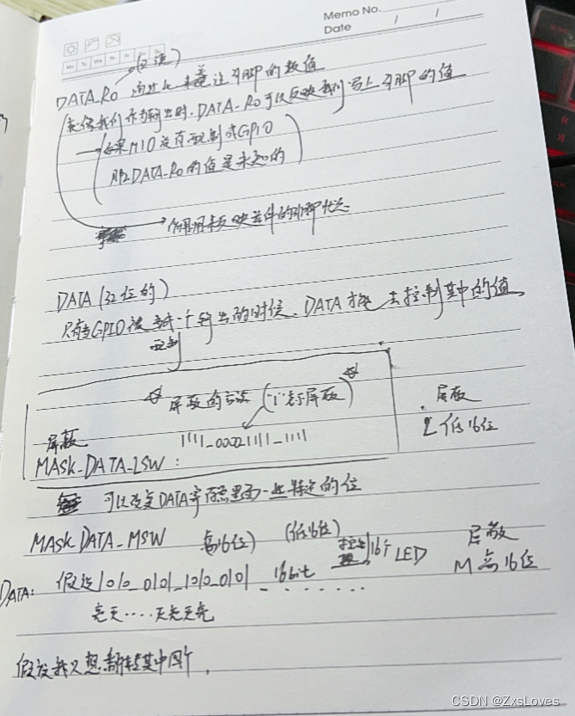 Memo No.
Date / /
(只读)
DATA_RO 通过此 来着 这引脚的数值
我们 输出时. DATA_RO可以反映我们 马上引脚的值
如果MIO没有配制成GPIO
那么DATA_RO的值是未知的
用来反映器件的引脚状态
DATA (32位的)
只有当GPIO被 一个输出的时候. DATA才 去控制其中的值
配制
屏蔽的方法 ("1"表示屏蔽)
屏蔽
1111_0000 1111_1111
MASK_DATA_LSW:
屏蔽
L 低16位
可以改变DATA寄存器里面一些特定的位
MASK_DATA_MSW 高16位) (低16位)
控制 16个LED
屏蔽
M 高16位
DATA: 假设1010_0101_1010_0101 _ 16bit
亮灭.... 灭亮灭亮
假设我只想 其中四个.
CSDN @ZxsLoves